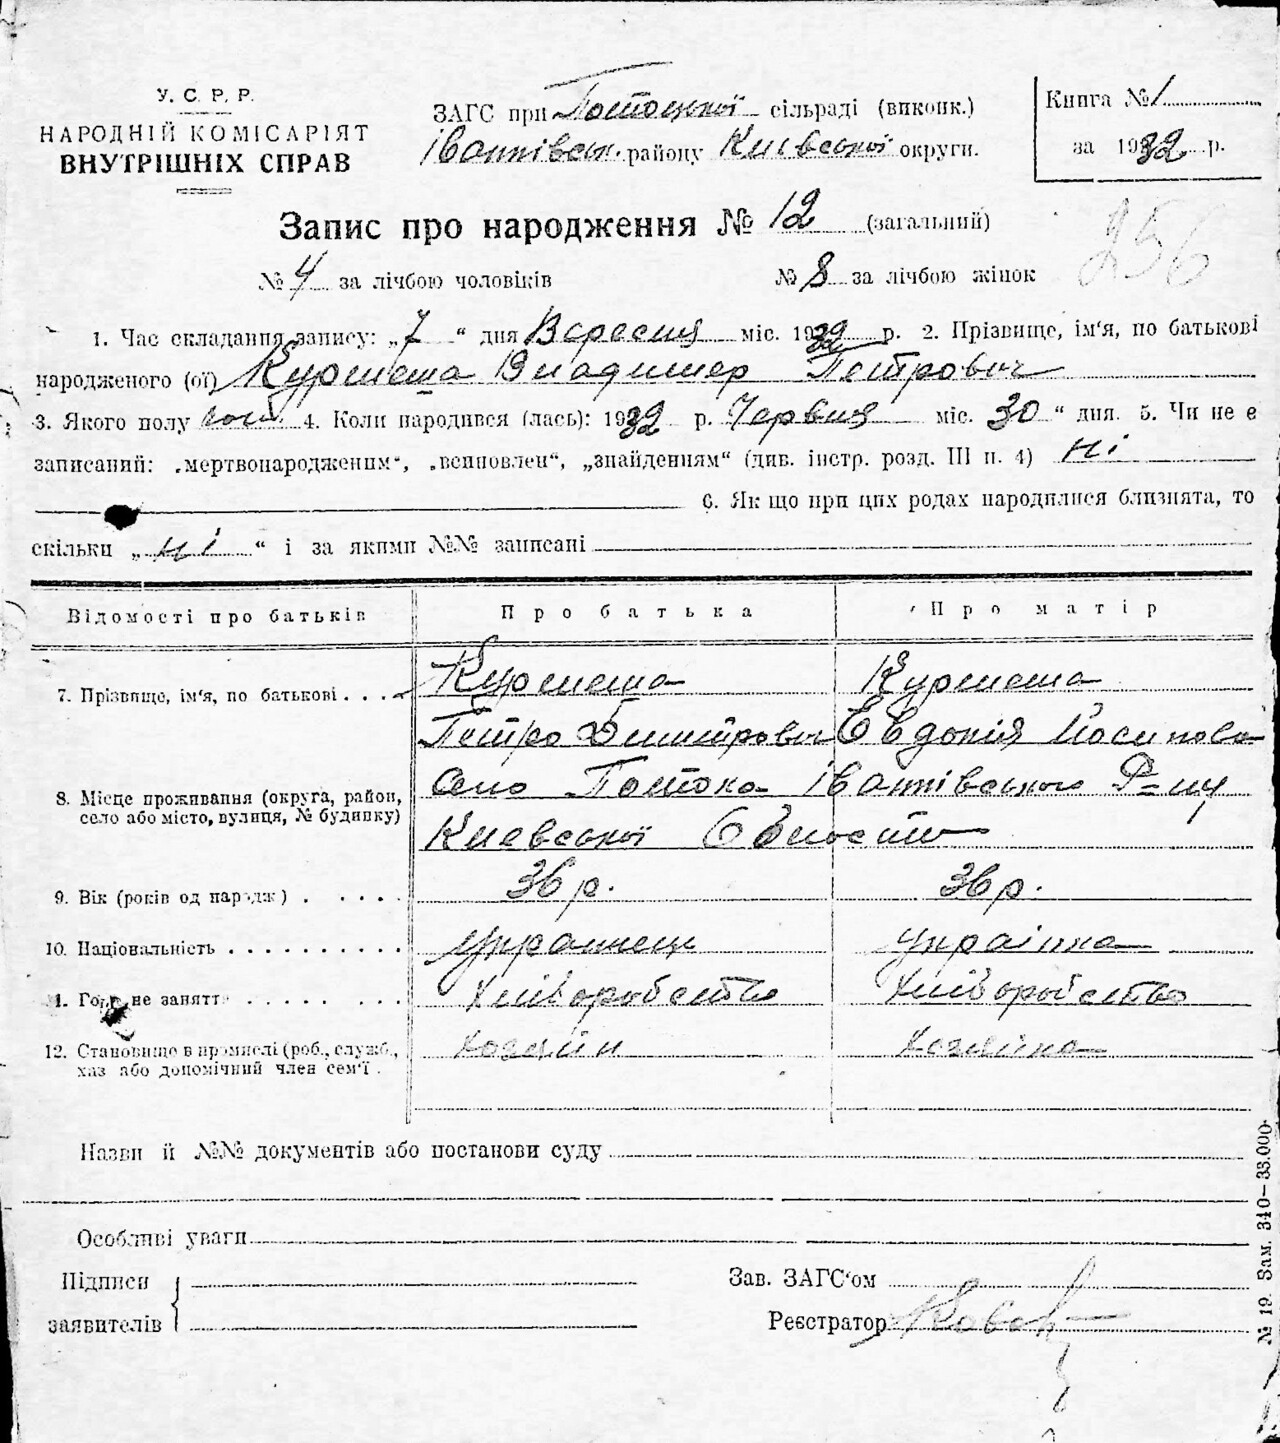 У. С. Р. Р.
НАРОДНІЙ КОМІСАРІЯТ
ВНУТРІШНІХ СПРАВ
ЗАГС при Потоцької сільраді (виконк.)
Іванківськ. району Київської округи.
Книга № 1
за 1932 р.
Запис про народження № 12 (загальний)
256
№ 4 за лічбою чоловіків № 8 за лічбою жінок
1. Час складання запису: „7 “ дня Вересня міс. 1932 р. 2. Прізвище, ім'я, по батькові
народженого (ої) Курмеша Владимер Петрович
3. Якого полу 4. Коли народився (лась): 1932 р. Червня міс. 30 “ дня. 5. Чи не є
записаний: „мертвонародженим“, „всиновлен“, „знайденням“ (див. інстр. розд. III п. 4) ні
6. Як що при цих родах народилися близнята, то
скільки „ ні “ і за якими №№ записані
Відомості про батьків Про батька Про матір
7. Прізвище, ім'я, по батькові . . . . Курмеша Курмеша
Петро Дмитрович Евдокія Йосипова
8. Місце проживання (округа, район, село Потока Іванківського Р-ну
село або місто, вулиця, № будинку) Киевської Области
9. Вік (років од народж) . . . . . 36 р. 36 р.
10. Національність . . . . . . . . . . Украинець Украінка
Го не заняття . . . . . . . . Хліборобство Хліборобство
12. Становище в промислі (роб., служб., Хозяйн Хозяйка
хаз або допомічний член сем'ї .
Назви й №№ документів або постанови суду
Особливі уваги
Підписи
заявителів
Зав. ЗАГС'ом
Реєстратор
№ 19. Зам. 340—33.000.